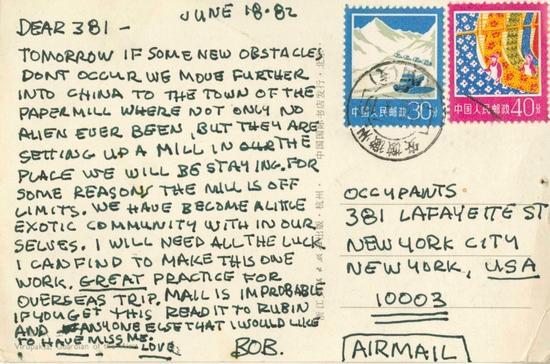 JUNE 18·82
DEAR 381 –
TOMORROW IF SOME NEW OBSTACLES
DONT OCCUR WE MOVE FURTHER
INTO CHINA TO THE TOWN OF THE
PAPERMILL WHERE NOT ONLY NO
ALIEN EVER BEEN, BUT THEY ARE
SETTING UP A MILL IN OUR THE
PLACE WE WILL BE STAYING. FOR
SOME REASON THE MILL IS OFF
LIMITS. WE HAVE BECOME A LITTLE
EXOTIC COMMUNITY WITH IN OUR
SELVES. I WILL NEED ALL THE LUCK
I CAN FIND TO MAKE THIS ONE
WORK. GREAT PRACTICE FOR
OVERSEAS TRIP. MAIL IS IMPROBABLE
IF YOU GET THIS READ IT TO RUBIN
AND ANYONE ELSE THAT I WOULD LIKE
TO HAVE MISS ME.
LOVE,
BOB.
中国人民邮政 30分
中国人民邮政 40分
OCCUPANTS
381 LAFAYETTE ST
NEW YORK CITY
NEW YORK, USA
10003
AIRMAIL